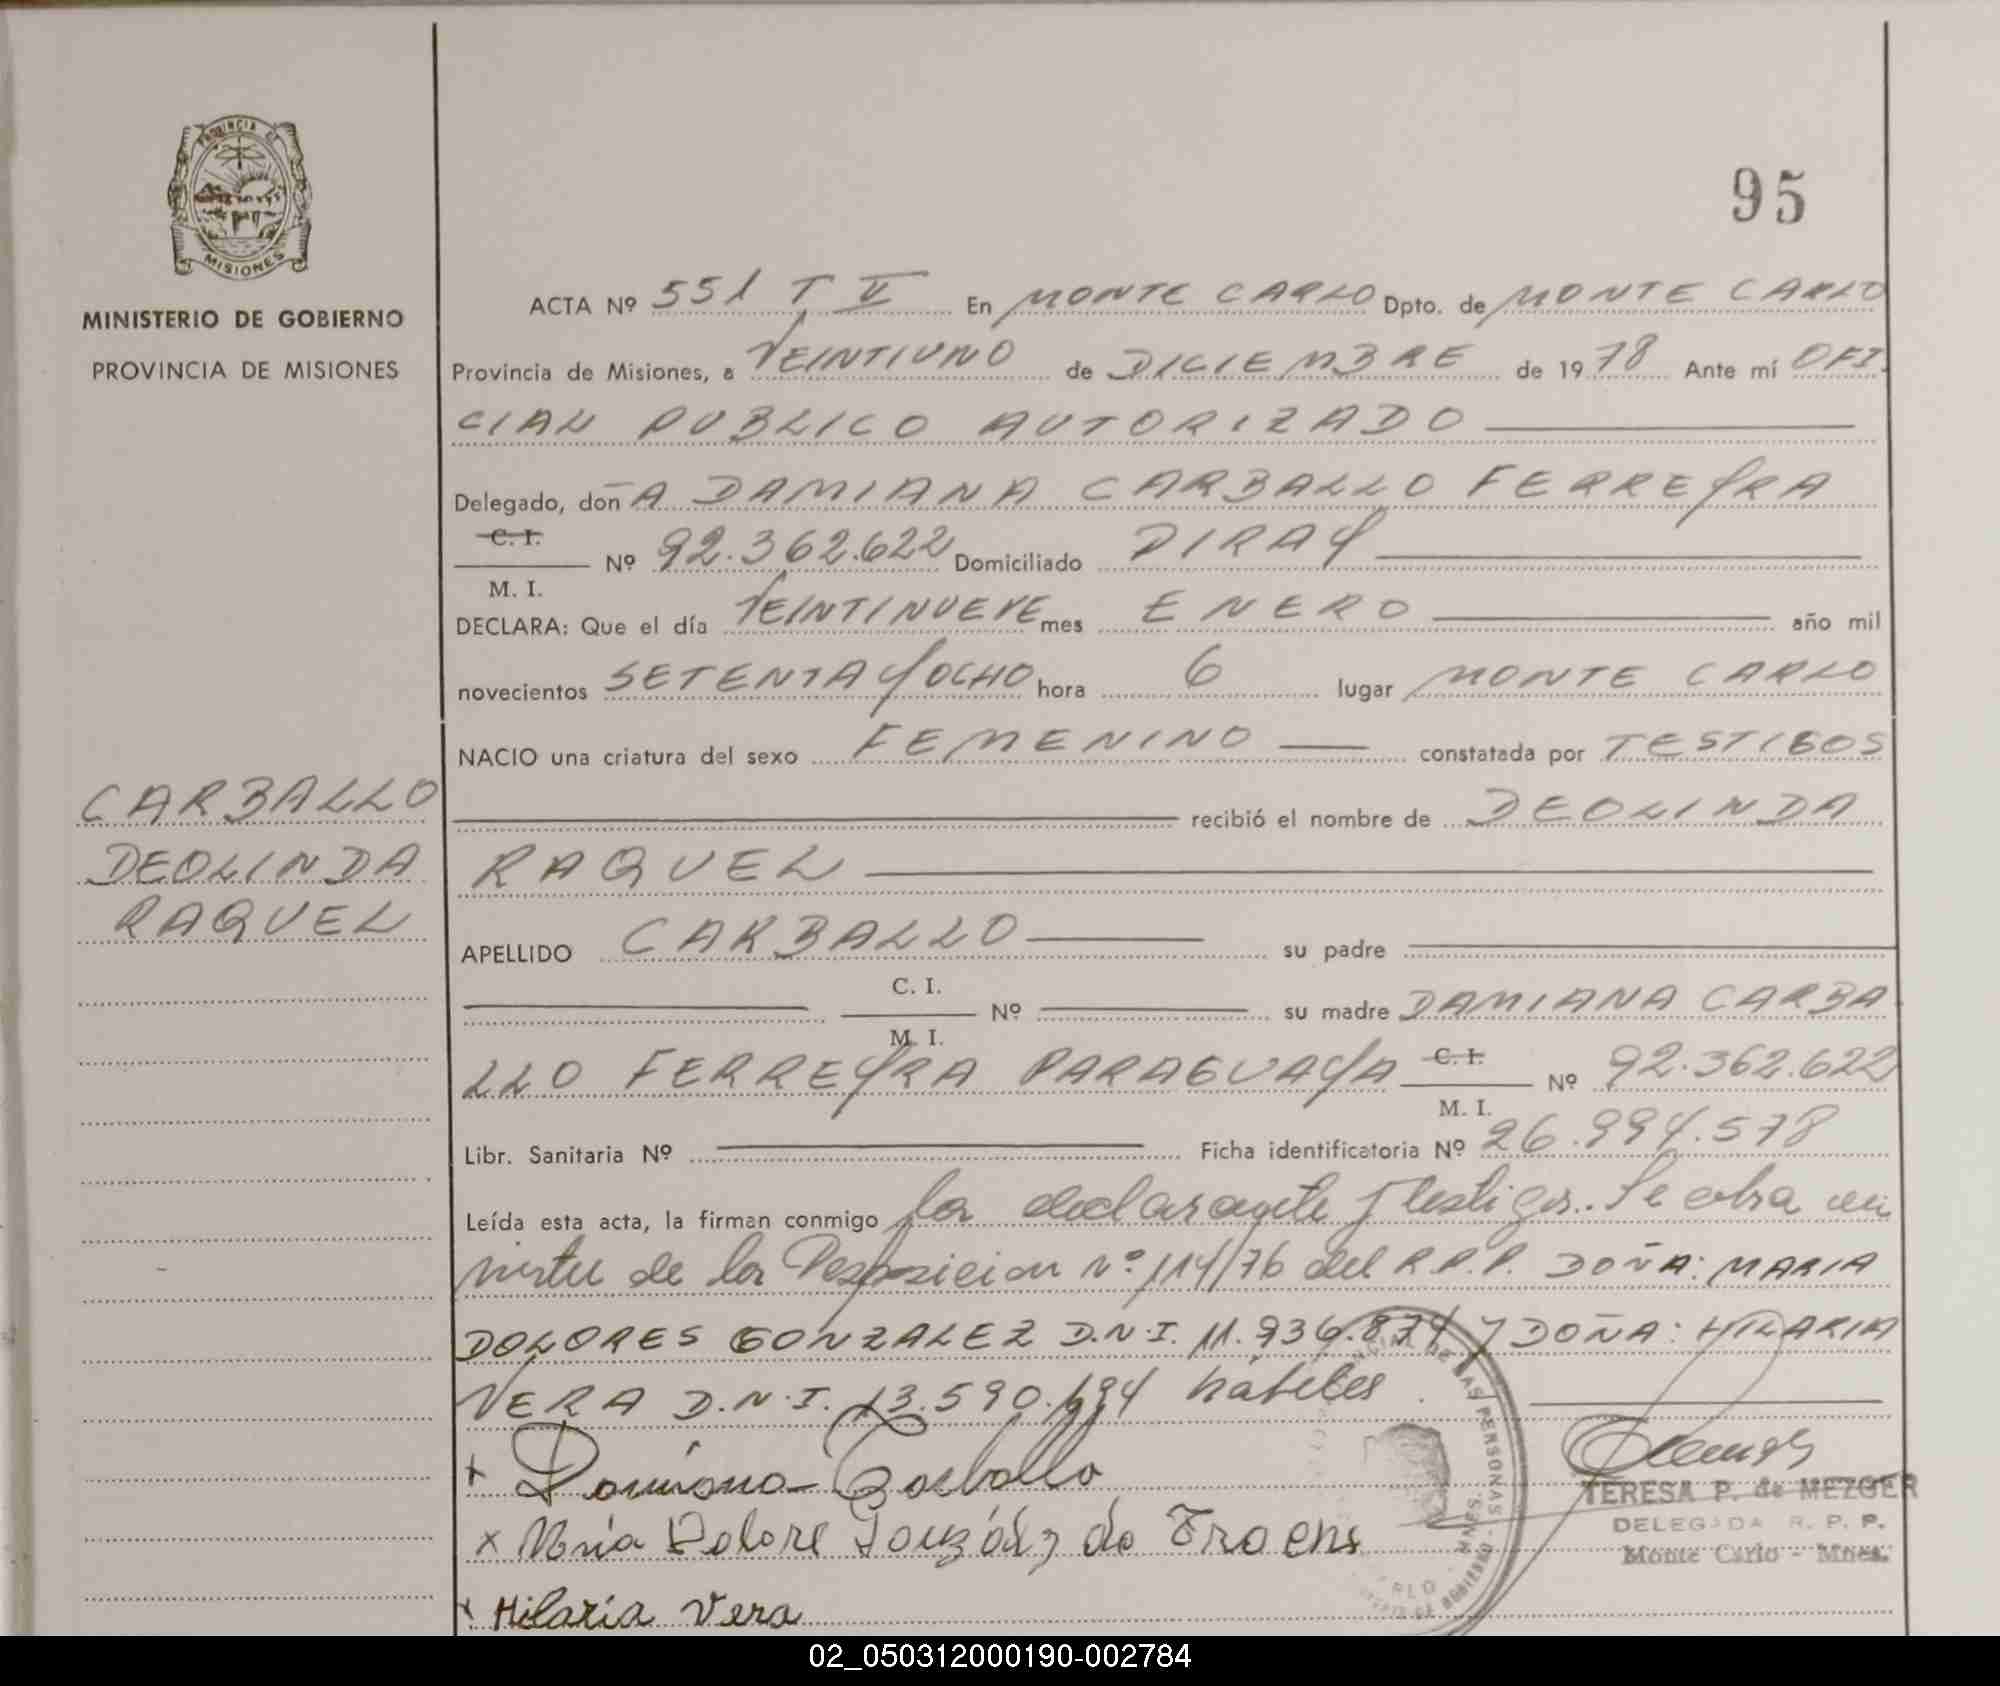 PROVINCIA DE
MISIONES
MINISTERIO DE GOBIERNO
PROVINCIA DE MISIONES
95
ACTA Nº 551 T II En MONTE CARLO Dpto. de MONTE CARLO
Provincia de Misiones, a VEINTIUNO de DICIEMBRE de 1978 Ante mí OFI
CIAL PUBLICO AUTORIZADO
Delegado, doñA DAMIANA CARBALLO FERREYRA
C. I.
M. I.
Nº 92.362.622 Domiciliado PIRAY
DECLARA: Que el día VEINTINUEVE mes ENERO año mil
novecientos SETENTA Y OCHO hora 6 lugar MONTE CARLO
NACIO una criatura del sexo FEMENINO constatada por TESTIGOS
recibió el nombre de DEOLINDA
RAQUEL
CARBALLO
DEOLINDA
RAQUEL
APELLIDO CARBALLO su padre
C. I.
M. I.
Nº su madre DAMIANA CARBA
LLO FERREYRA PARAGUAYA C. I. Nº 92.362.622
M. I.
Libr. Sanitaria Nº Ficha identificatoria Nº 26.994.578
Leída esta acta, la firman conmigo la declarante y testigos. Se labra en
virtu de la Disposicion Nº 114/76 del R.P.P. DOÑA: MARIA
DOLORES GONZALEZ D.N.I. 11.936.874 y DOÑA: HILARIA
VERA D.N.I. 13.590.194 hábiles
x Damiana Carballo
x María Dolore González de Froens
x Hilaria Vera
TERESA P. de MEZGER
DELEGADA R. P. P.
Monte Carlo - Mnes.
02_050312000190-002784